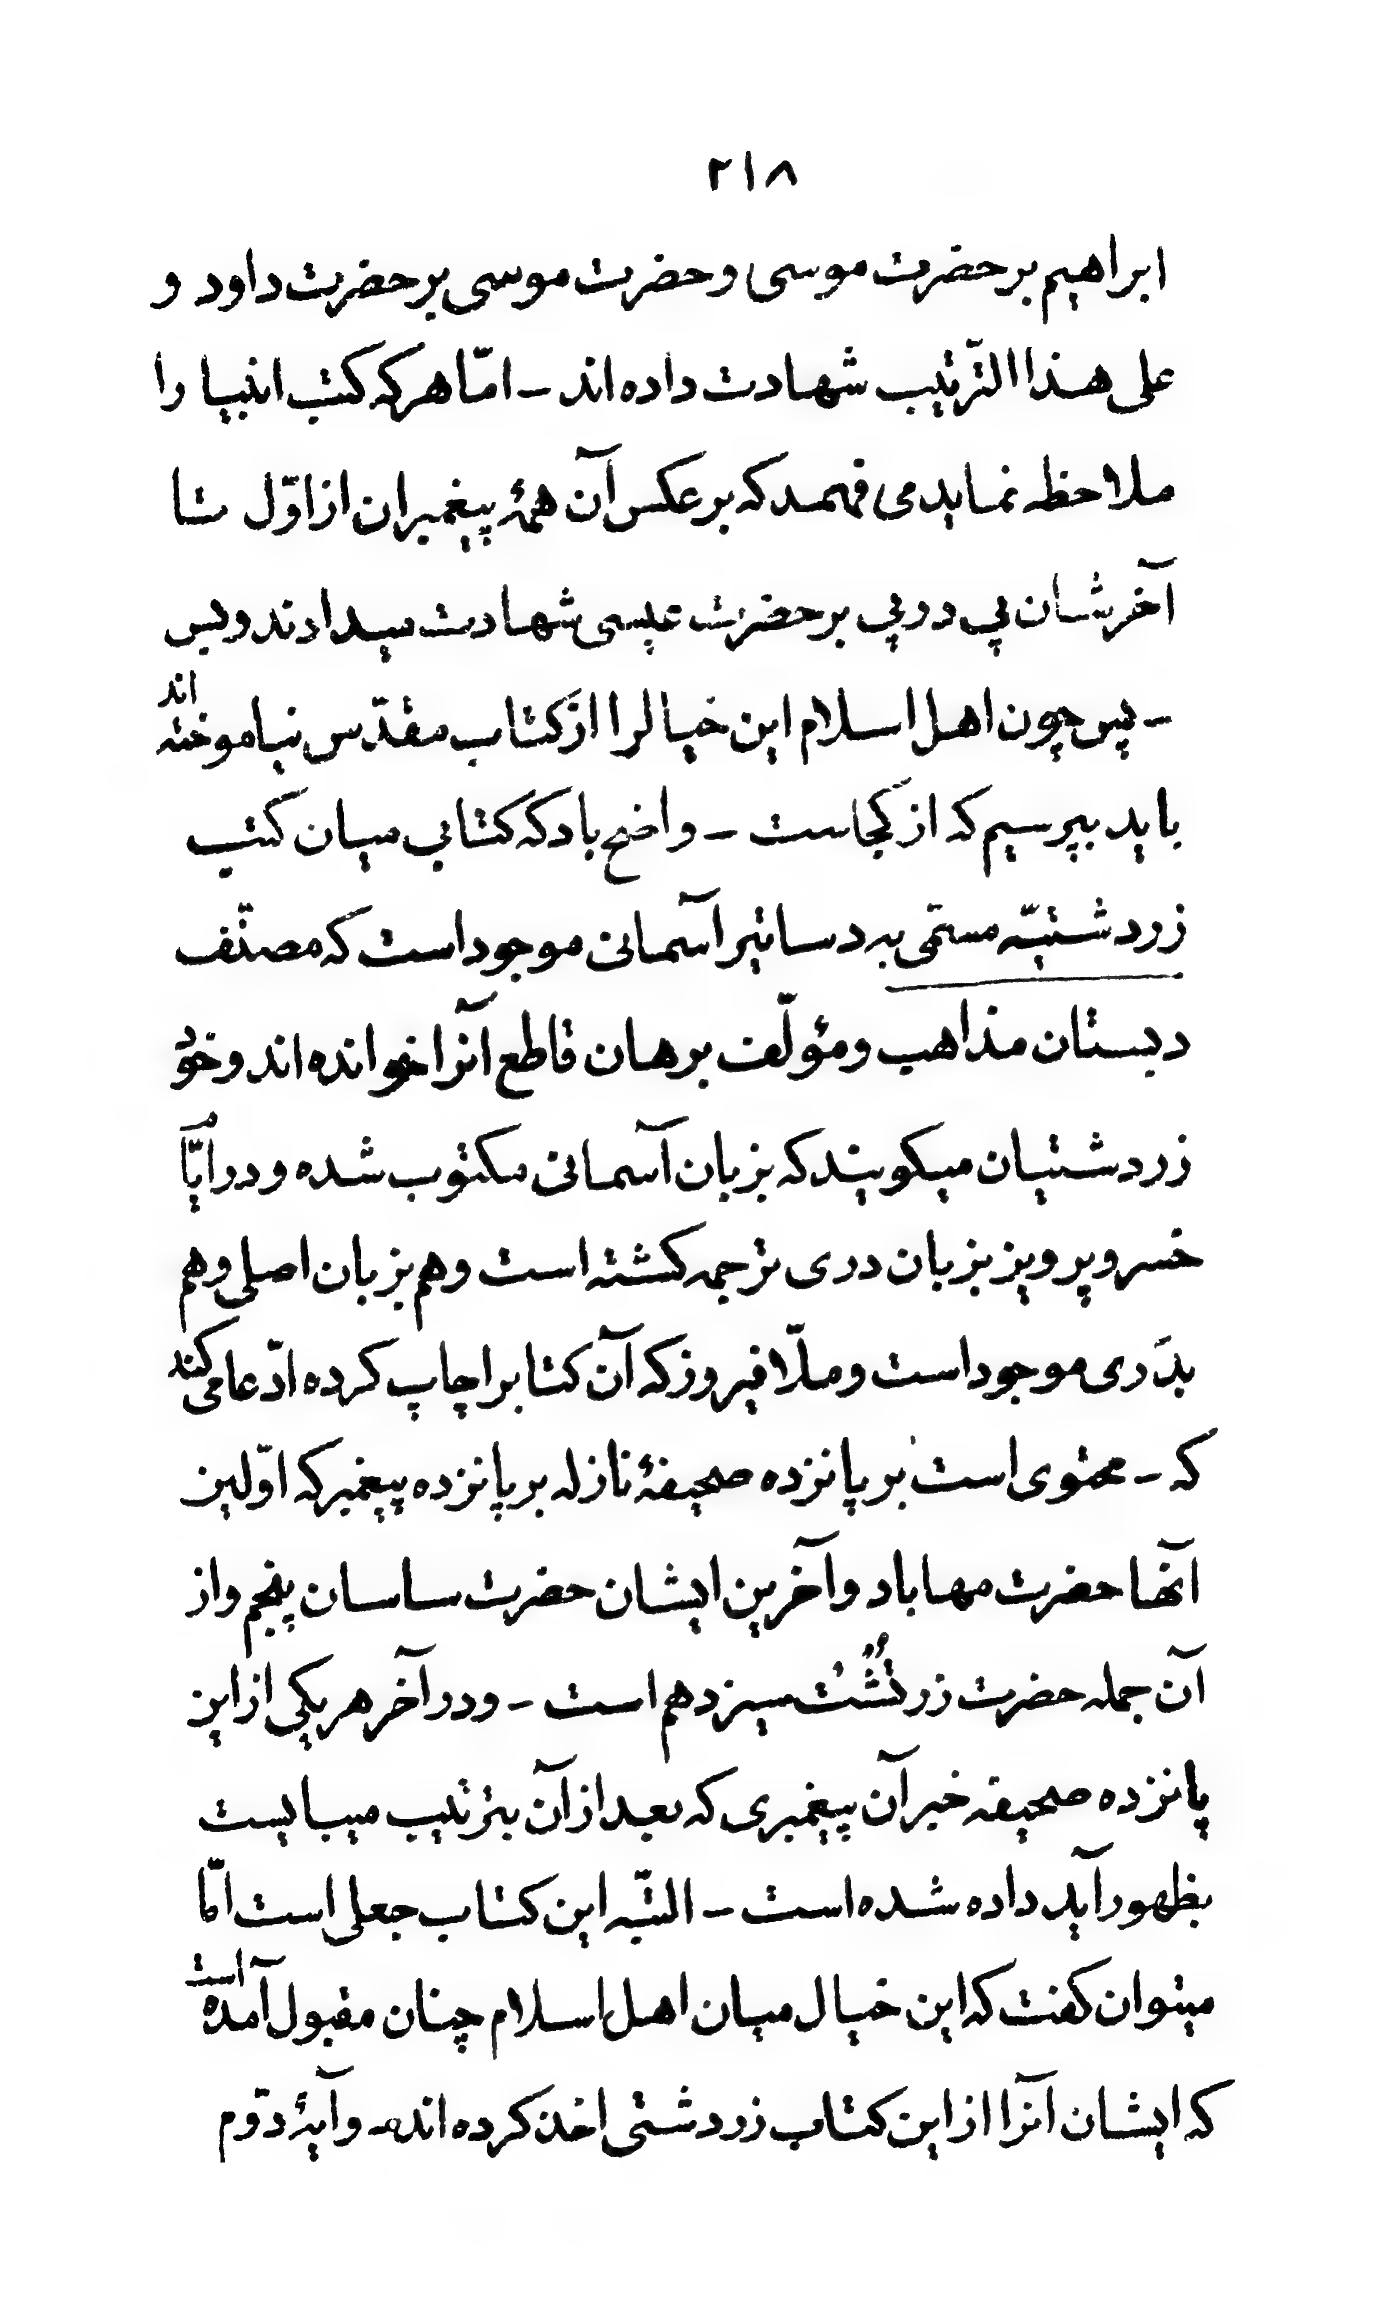 ۲۱۸
ابراهیم بر حضرت موسی و حضرت موسی بر حضرت داود و
علی هذا الترّتیب شهادت داده اند – امّا هر که کتب انبیا را
ملاحظه نماید می فهمد که بر عکس آن همهٔ پیغمبران از اوّل تا
آخرشان پی در پی بر حضرت عیسی شهادت میدادند و بس
– پس چون اهل اسلام این خیالرا از کتاب مقدّس نیاموخته اند
باید بپرسیم که از کجاست – واضح باد که کتابی میان کتب
زردشتیّه مسمّی به دساتیر آسمانی موجود است که مصنّف
دبستان مذاهب و مؤلّف برهان قاطع آنرا خوانده اند و خود
زردشتیان میکویند که بزبان آسمانی مکتوب شده و در ایّام
خسرو پرویز بزبان دری ترجمه کشته است و هم بزبان اصلی و هم
بدَری موجود است و ملّا فیروز که آن کتابرا چاپ کرده ادّعا می کند
که – محتوی است بر پانزده صحیفهٔ نازله بر پانزده پیغمبر که اوّلین
آنها حضرت مهاباد و آخرین ایشان حضرت ساسان پنجم و از
آن جمله حضرت زرتُشْت سیزدهم است – و در آخر هر یکی از این
پانزده صحیفه خبر آن پیغمبری که بعد از آن بترتیب میبایست
بظهور آید داده شده است – البتّه این کتاب جعلی است امّا
میتوان کفت که این خیال میان اهل اسلام چنان مقبول آمده است
که ایشان آنرا از این کتاب زردشتی اخذ کرده اند – و آیهٔ دوّم